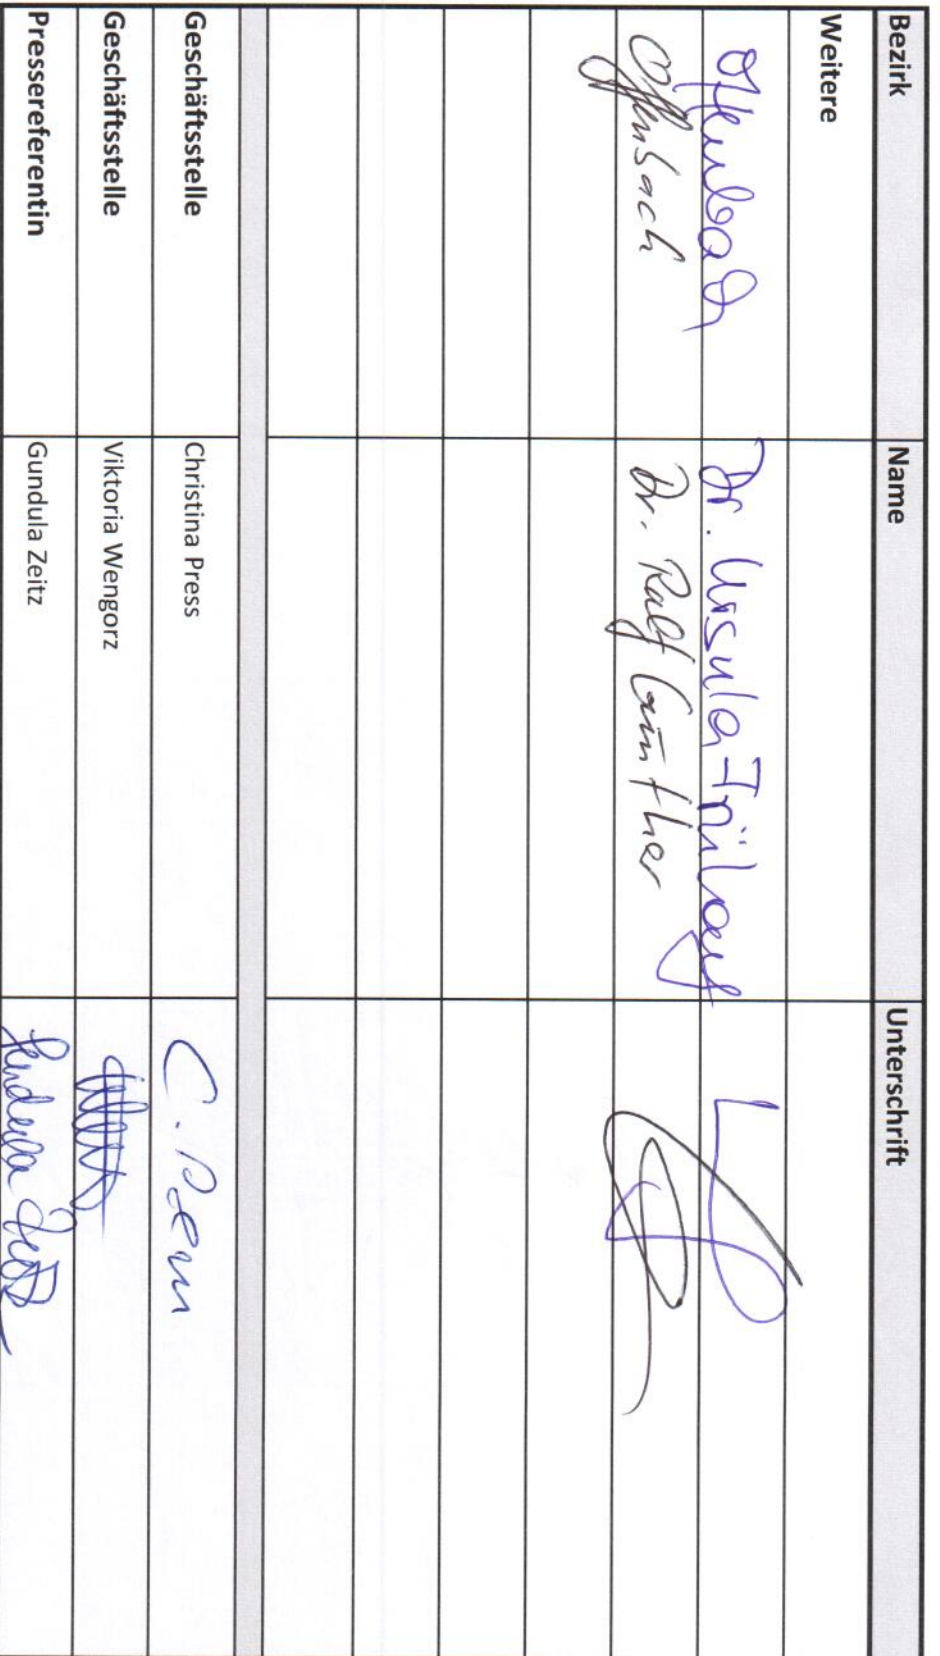 Bezirk Name Unterschrift
Weitere
Offenbach Dr. Ursula
Offenbach Dr. Ralf Günther
Geschäftsstelle Christina Press C. Press
Geschäftsstelle Viktoria Wengorz
Pressereferentin Gundula Zeitz Gundula Zeitz